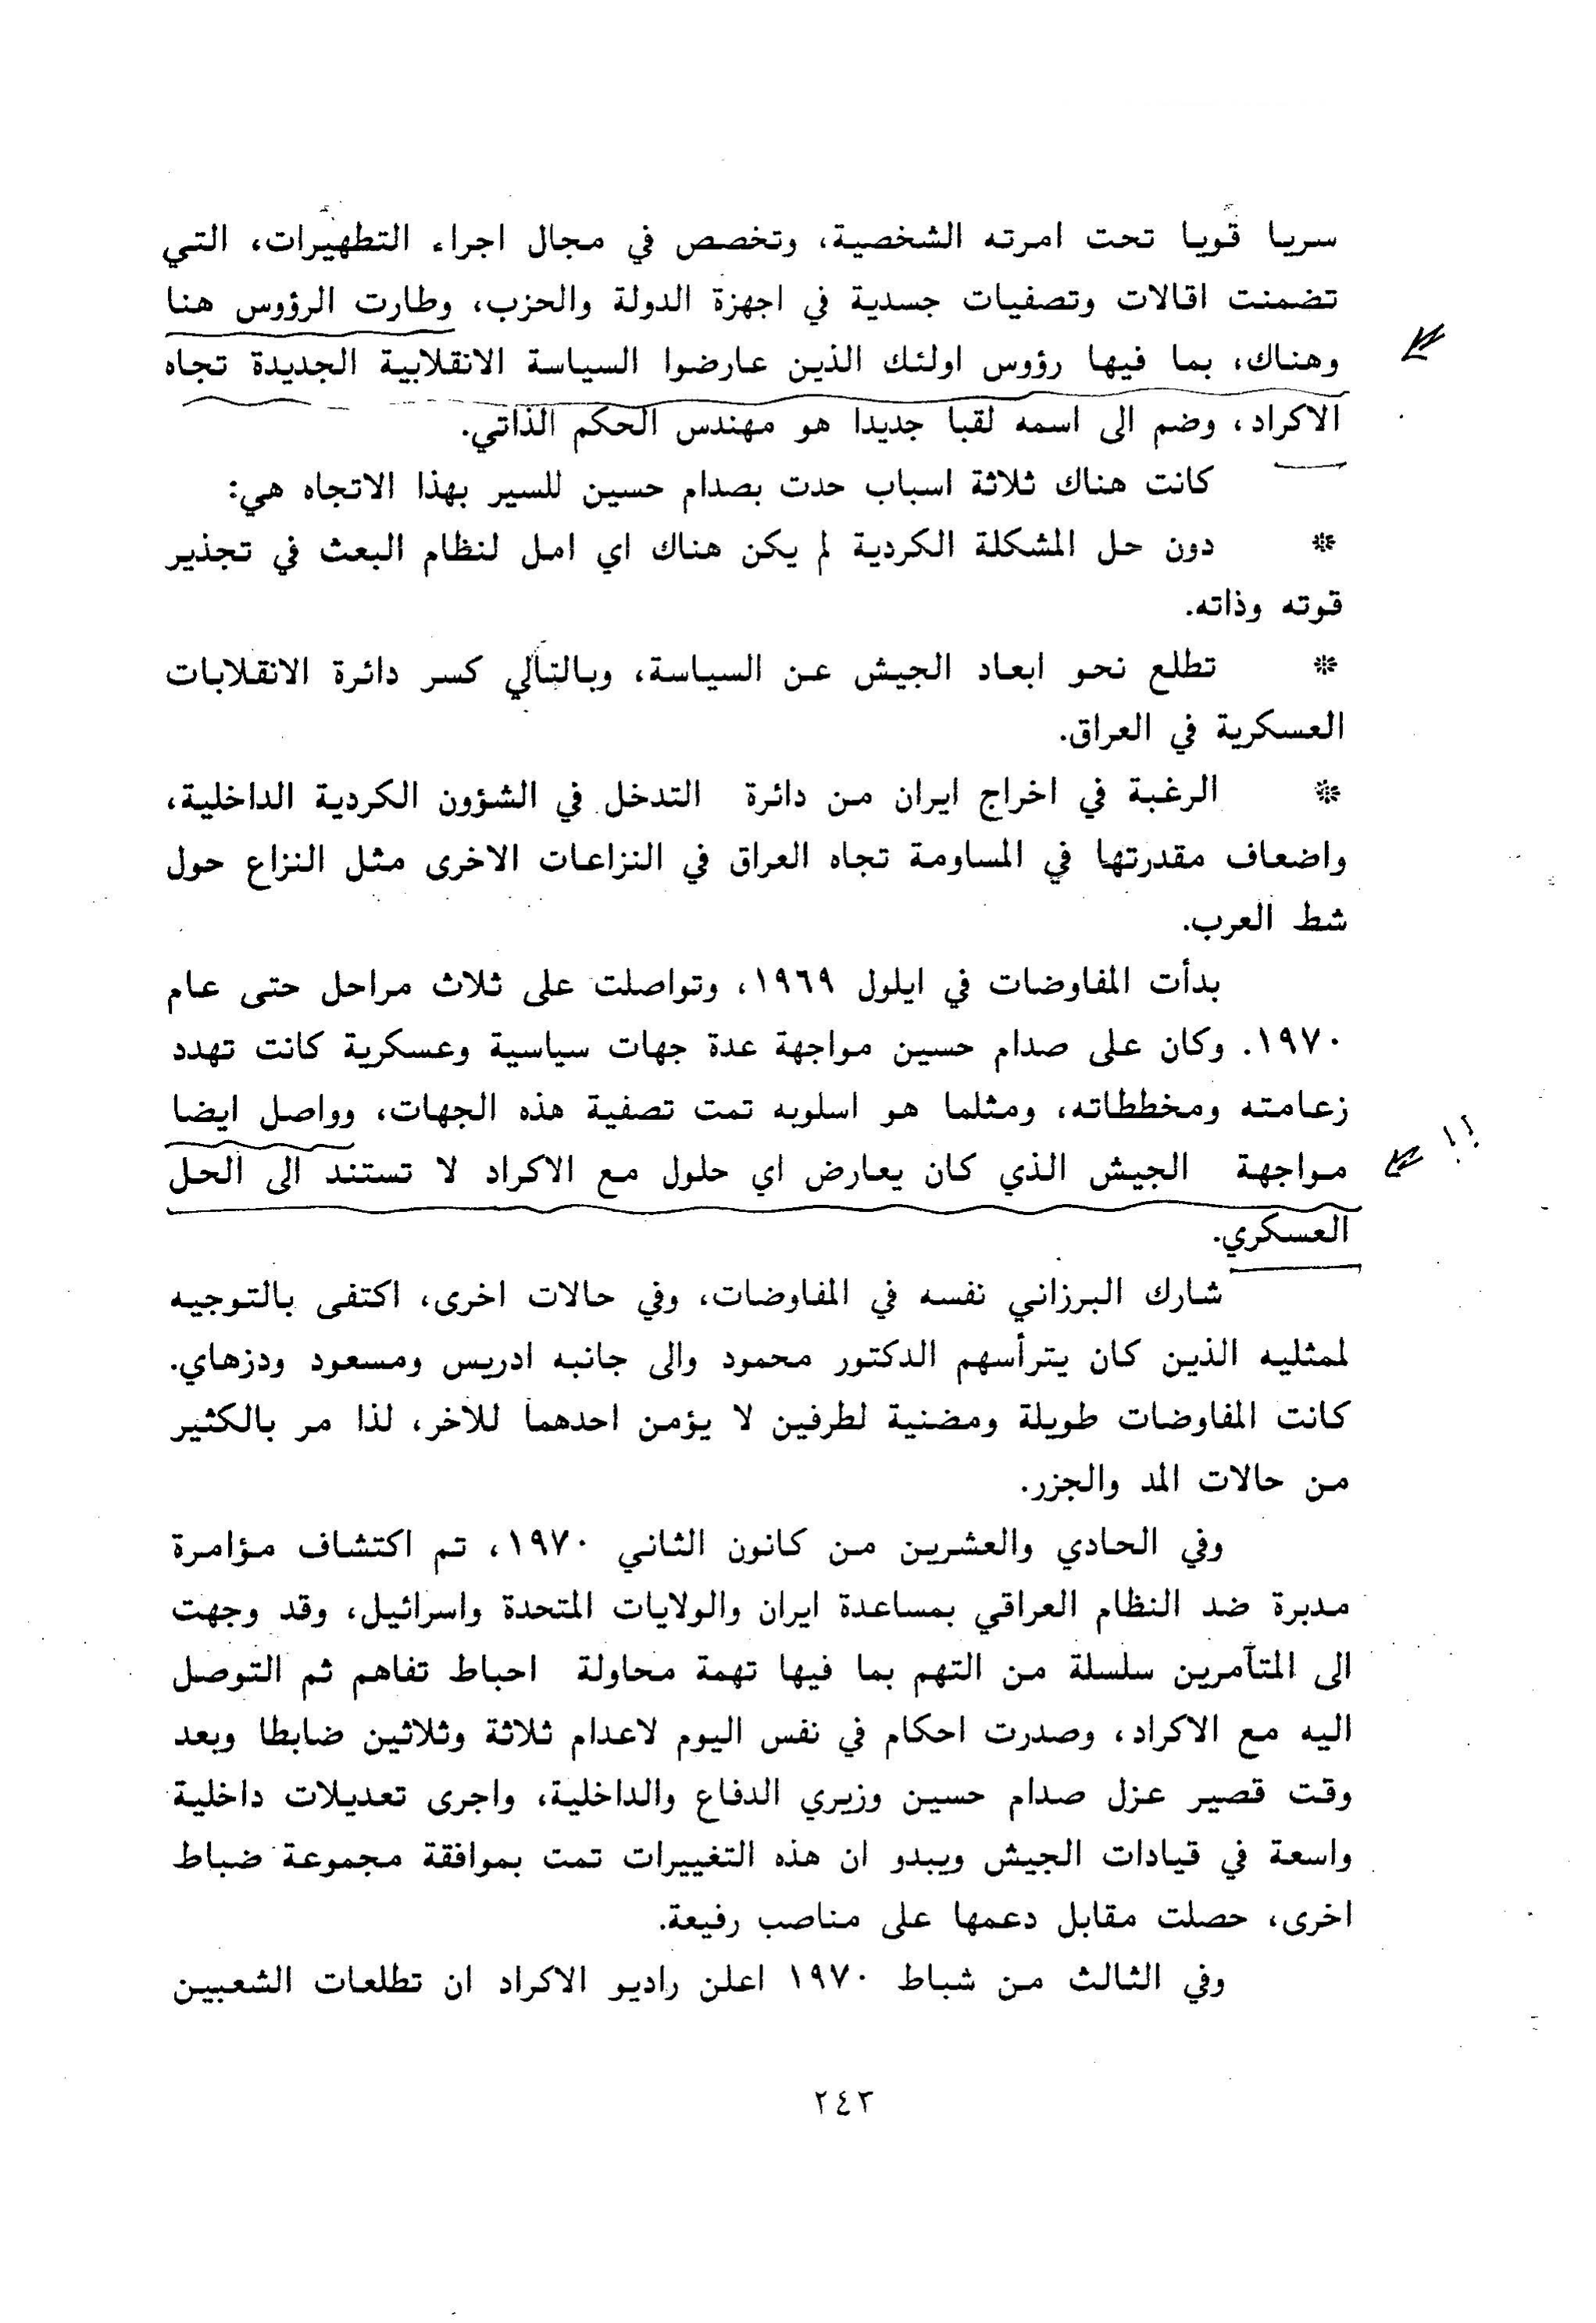 سريا قويا تحت امرته الشخصية، وتخصص في مجال اجراء التطهيرات، التي
تضمنت اقالات وتصفيات جسدية في اجهزة الدولة والحزب، وطارت الرؤوس هنا
وهناك، بما فيها رؤوس اولئك الذين عارضوا السياسة الانقلابية الجديدة تجاه
الاكراد، وضم الى اسمه لقبا جديدا هو مهندس الحكم الذاتي.
كانت هناك ثلاثة اسباب حدت بصدام حسين للسير بهذا الاتجاه هي:
* دون حل المشكلة الكردية لم يكن هناك اي امل لنظام البعث في تجذير
قوته وذاته.
* تطلع نحو ابعاد الجيش عن السياسة، وبالتالي كسر دائرة الانقلابات
العسكرية في العراق.
* الرغبة في اخراج ايران من دائرة التدخل في الشؤون الكردية الداخلية،
واضعاف مقدرتها في المساومة تجاه العراق في النزاعات الاخرى مثل النزاع حول
شط العرب.
بدأت المفاوضات في ايلول ١٩٦٩، وتواصلت على ثلاث مراحل حتى عام
١٩٧٠. وكان على صدام حسين مواجهة عدة جهات سياسية وعسكرية كانت تهدد
زعامته ومخططاته، ومثلما هو اسلوبه تمت تصفية هذه الجهات، وواصل ايضا
!! مواجهة الجيش الذي كان يعارض اي حلول مع الاكراد لا تستند الى الحل
العسكري.
شارك البرزاني نفسه في المفاوضات، وفي حالات اخرى، اكتفى بالتوجيه
لممثليه الذين كان يترأسهم الدكتور محمود والى جانبه ادريس ومسعود ودزهاي.
كانت المفاوضات طويلة ومضنية لطرفين لا يؤمن احدهما للاخر، لذا مر بالكثير
من حالات المد والجزر.
وفي الحادي والعشرين من كانون الثاني ١٩٧٠، تم اكتشاف مؤامرة
مدبرة ضد النظام العراقي بمساعدة ايران والولايات المتحدة واسرائيل، وقد وجهت
الى المتآمرين سلسلة من التهم بما فيها تهمة محاولة احباط تفاهم ثم التوصل
اليه مع الاكراد، وصدرت احكام في نفس اليوم لاعدام ثلاثة وثلاثين ضابطا وبعد
وقت قصير عزل صدام حسين وزيري الدفاع والداخلية، واجرى تعديلات داخلية
واسعة في قيادات الجيش ويبدو ان هذه التغييرات تمت بموافقة مجموعة ضباط
اخرى، حصلت مقابل دعمها على مناصب رفيعة.
وفي الثالث من شباط ١٩٧٠ اعلن راديو الاكراد ان تطلعات الشعبين
٢٤٣